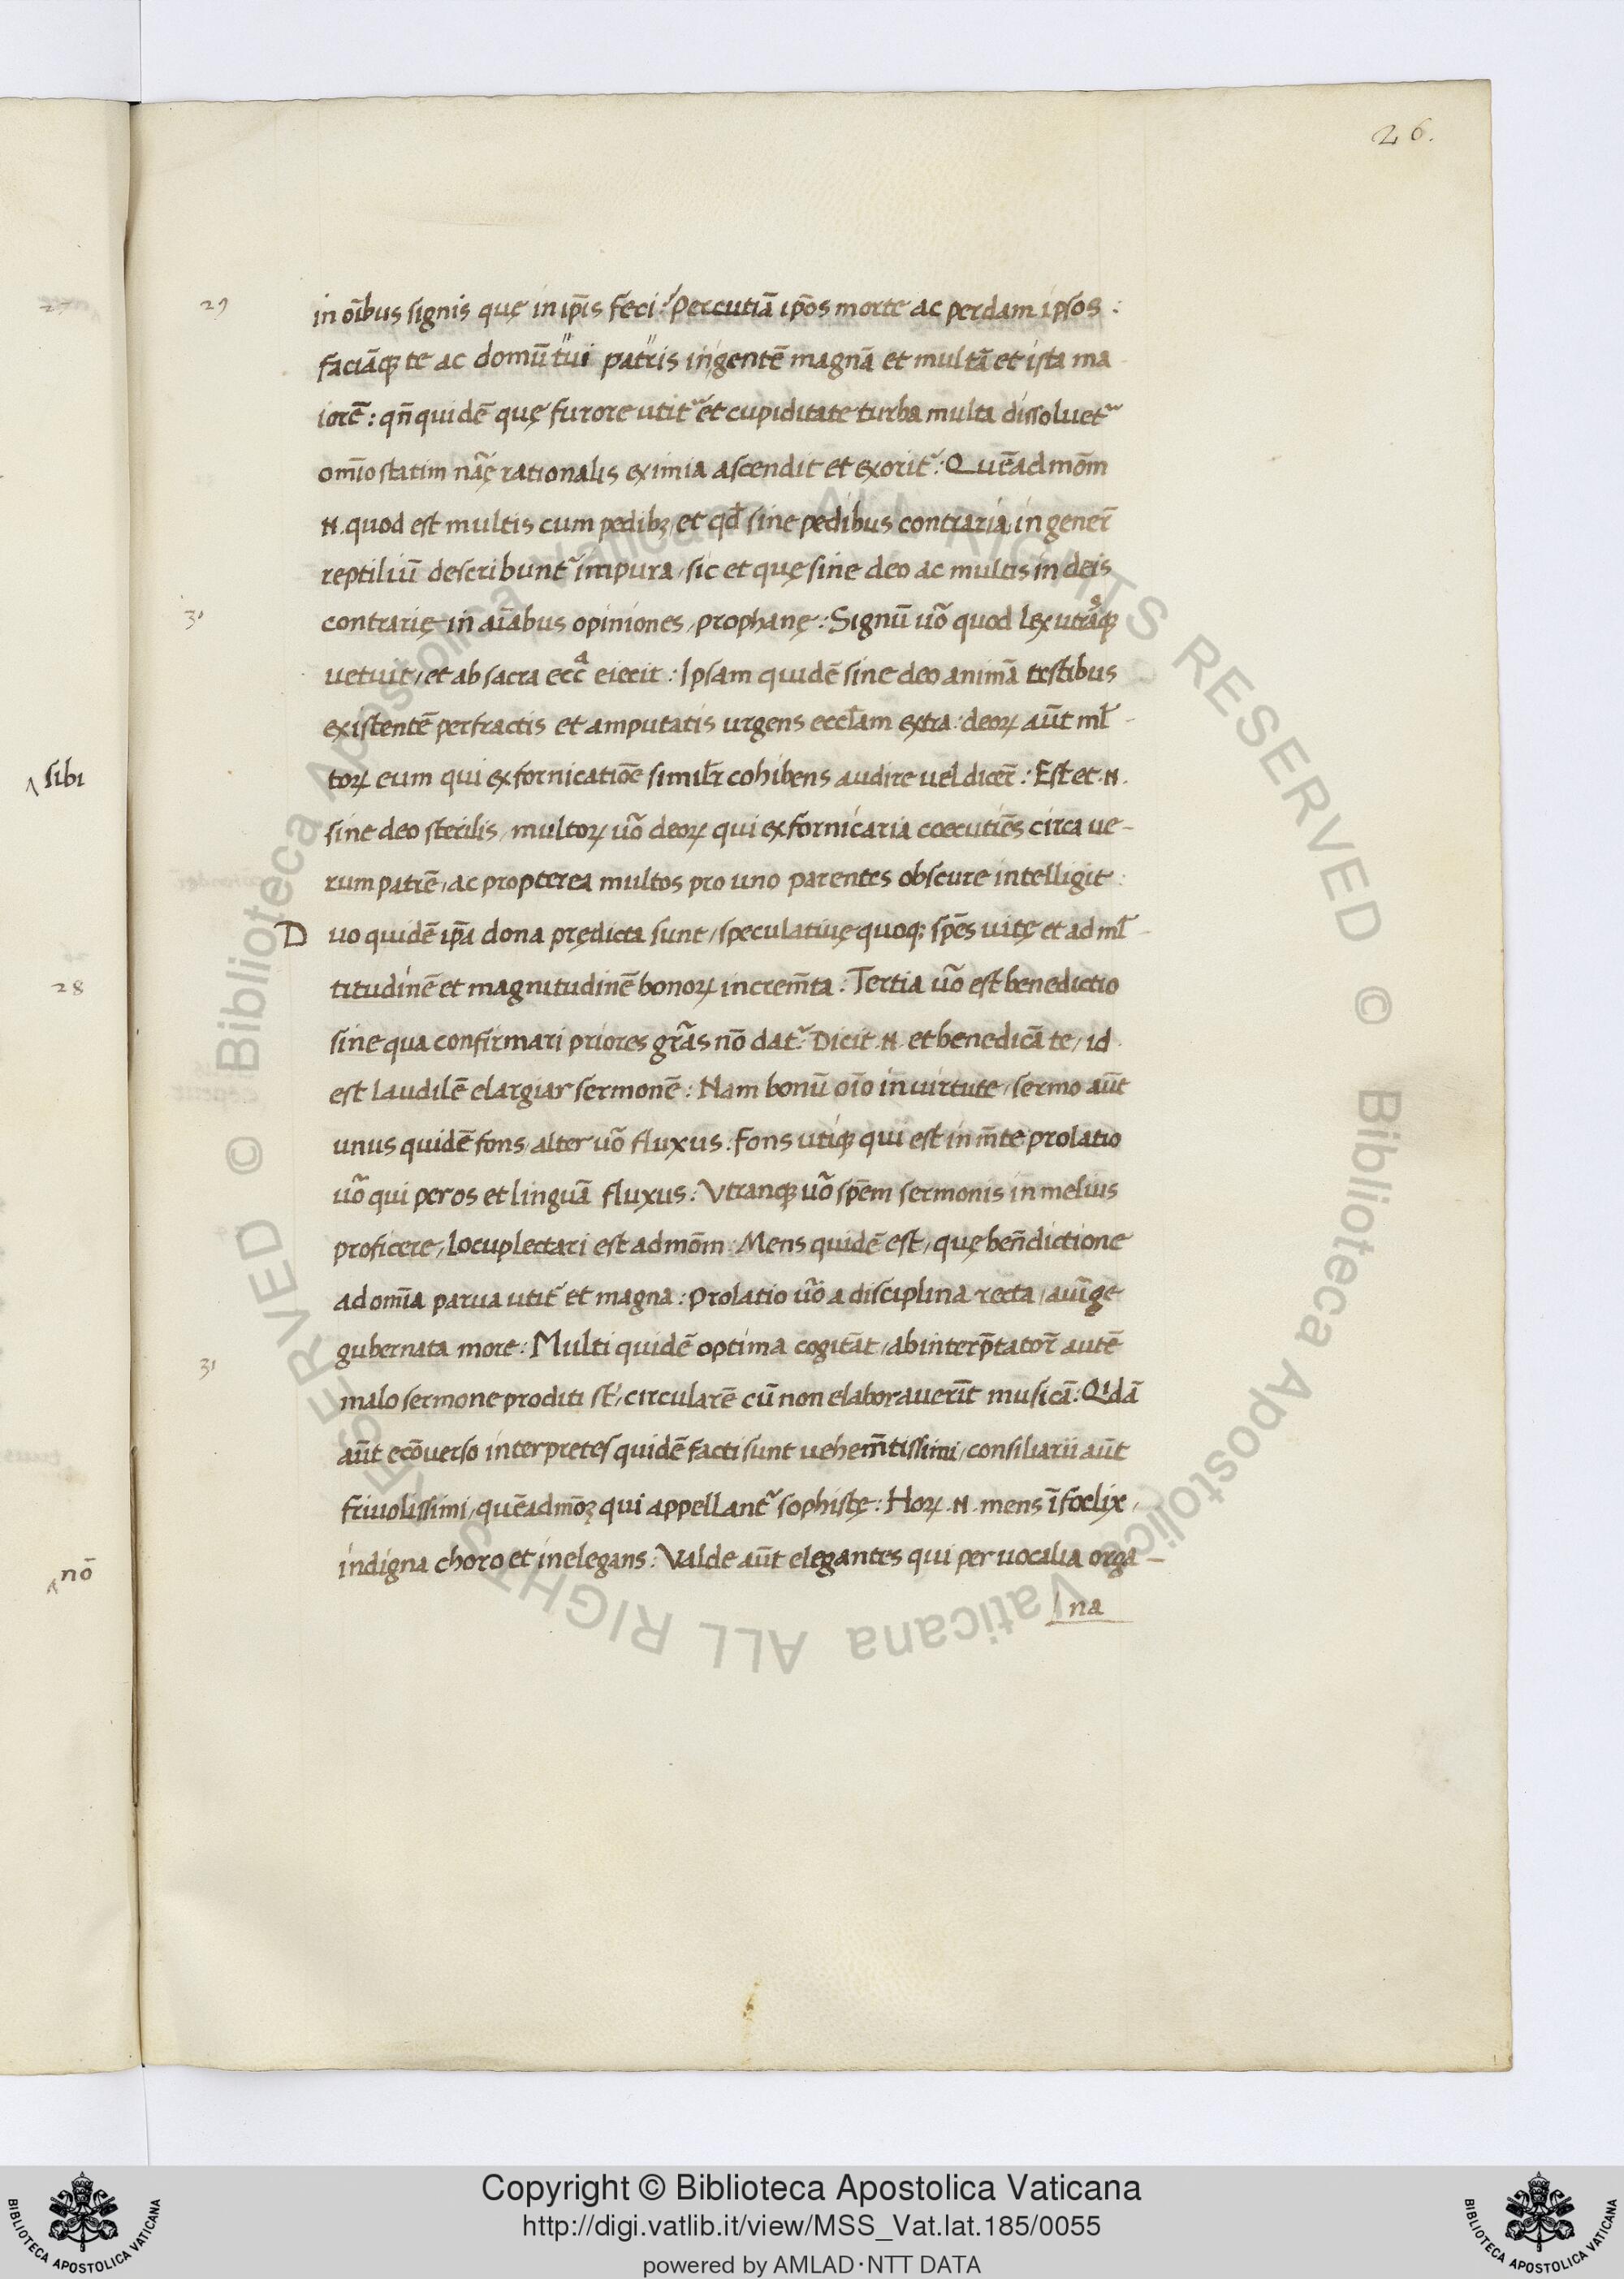 26.
29
in oībus signis quę in ip̄is feci? Percutiā ip̄os morte ac perdam ipsos:
faciāq; te ac domū tui patris in gentē magnā et multā et ista ma
iorē: qn̄ quidē quę furore utit᷑ et cupiditate turba multa dissoluet᷑
om̄io statim nāę rationalis eximia ascendit et exorit᷑: Quēadmōm
.N. quod est multis cum pedibꝫ, et qd̄ sine pedibus contraria in gener̄
reptiliū describunt᷑ impura, sic et quę sine deo ac multis in deis
30
contrarię in aīabus opiniones, prophanę: Signū uō quod lex utrasq;
uetuit, et ab sacra ecca eiecit: Ipsam quidē sine deo animā testibus
existentē perfractis et amputatis urgens eccl̄am extra: deoꝝ aūt ml̄
sibi
toꝝ eum qui ex fornicatiōe similr̄ cohibens audire uel dicer̄: Est et .N.
sine deo sterilis, multoꝝ uō deoꝝ qui ex fornicaria coecutiēs circa ue-
rum patrē, ac propterea multos pro uno parentes obscure intelligit:
Duo quidē ip̄a dona prędicta sunt, speculatiuę quoq; sp̄es uitę et ad ml̄-
28
titudinē et magnitudinē bonoꝝ increm̄ta: Tertia uō est benedictio
sine qua confirmari priores gr̄as nō dat᷑: Dicit .N. et benedicā te, id
est laudilē elargiar sermonē: Nam bonū oīo in uirtute, sermo aūt
unus quidē fons, alter uō fluxus: Fons utiq; qui est in m̄te prolatio
uō qui per os et linguā fluxus: Vtranq; uō sp̄em sermonis in melius
proficere, locuplectari est admōm: Mens quidē est, quę ben̄dictione
ad om̄ia parua utit᷑ et magna: Prolatio uō a disciplina recta, aurigę
31
gubernata more: Multi quidē optima cogitāt, ab interp̄tator̄ autē
malo sermone proditi st̄, circularē cū non elaborauer̄t musicā: Qidā
aūt ecōuerso interpretes quidē facti sunt uehem̄tissimi, consiliarii aūt
friuolissimi, quēadmōꝫ qui appellant᷑ sophistę: Hoꝝ .N. mens īfoelix,
nō
indigna choro et inelegans: Valde aūt elegantes qui per uocalia orga-
na
© Biblioteca Apostolica Vaticana ALL RIGHTS RESERVED © Biblioteca Apostolica Vaticana ALL RIGHTS RESERVED
BIBLIOTECA APOSTOLICA VATICANA
Copyright © Biblioteca Apostolica Vaticana
http://digi.vatlib.it/view/MSS_Vat.lat.185/0055
powered by AMLAD·NTT DATA
BIBLIOTECA APOSTOLICA VATICANA